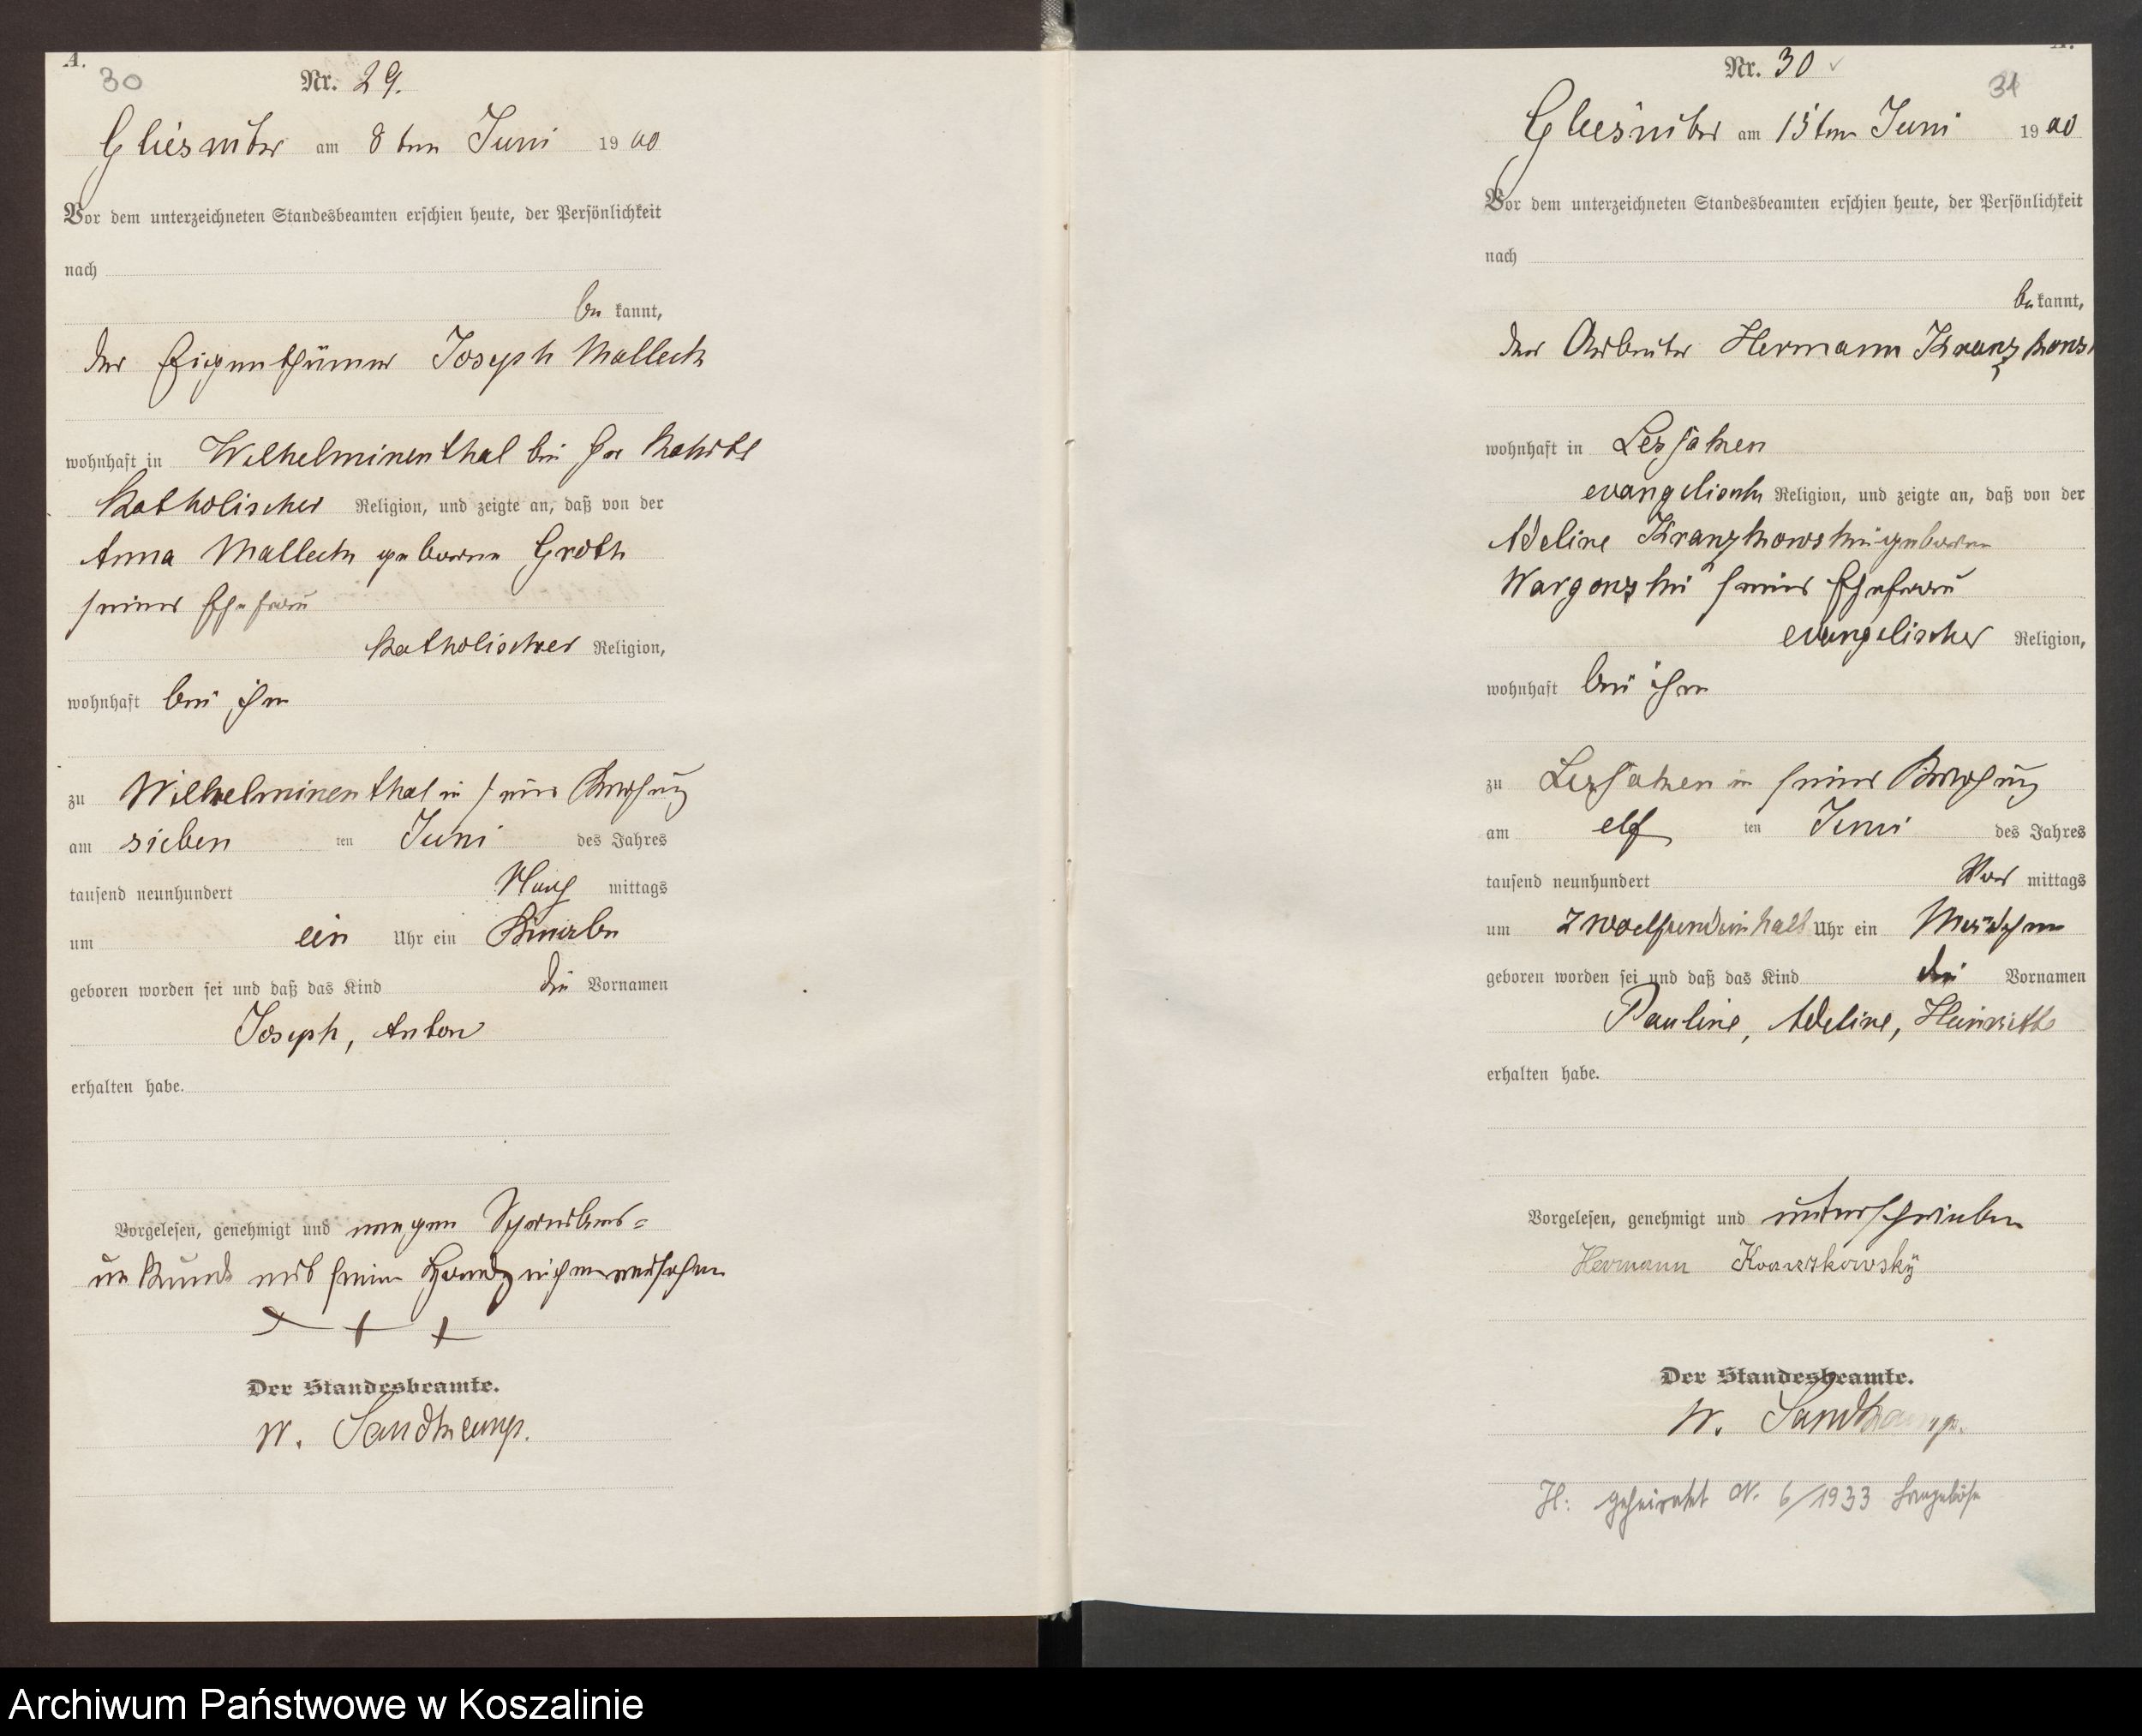 A.
30
Nr. 29.
Gliesnitz am 8ten Juni 1900
Vor dem unterzeichneten Standesbeamten erschien heute, der Persönlichkeit
nach
be kannt,
der Eigenthümer Joseph Malleck
wohnhaft in Wilhelminenthal bei
katholischer Religion, und zeigte an, daß von der
Anna Malleck geborene Groth
seiner Ehefrau
katholischer Religion,
wohnhaft bei ihm
zu Wilhelminenthal in seiner Behausung
am sieben ten Juni des Jahres
tausend neunhundert Nach mittags
um ein Uhr ein Knabe
geboren worden sei und daß das Kind die Vornamen
Joseph, Anton
erhalten habe.
Vorgelesen, genehmigt und wegen Schreibens-
unkunde mit seinem Handzeichen versehen
+ + +
Der Standesbeamte.
W. Sandkamp.
A.
Nr. 30
31
Gliesnitz am 15ten Juni 1900
Vor dem unterzeichneten Standesbeamten erschien heute, der Persönlichkeit
nach
be kannt,
der Arbeiter Hermann
wohnhaft in
evangelisch Religion, und zeigte an, daß von der
Adeline Kranzkowski geborene
Wargonzki seiner Ehefrau
evangelischer Religion,
wohnhaft bei ihm
zu in seiner Behausung
am elf ten Juni des Jahres
tausend neunhundert Vor mittags
um zwoelfundeinhalb Uhr ein Mädchen
geboren worden sei und daß das Kind die Vornamen
Pauline, Adeline, Heinriette
erhalten habe.
Vorgelesen, genehmigt und unterschrieben
Hermann
Der Standesbeamte.
W. Sandkamp.
H: geheiratet N. 6/1933 Langeböse
Archiwum Państwowe w Koszalinie